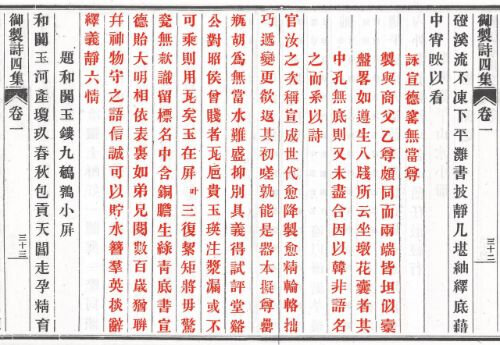 御製詩四集 卷一 三十二
磴溪流不凍下平灘書披靜几堪紬繹底藉
中宵映以看
詠宣德甆無當尊
製與商父乙尊頗同而兩端皆坦似臺
盤畧如遵生八牋所云坐墩花囊者其
中孔無底則又未盡合因以韓非語名
之而系以詩
官汝之次稱宣成世代愈降製愈精輪輅拙
巧遞變更欲返其初嗟孰能是器本擬尊罍
瓶胡為無當水難盛抑別具義得試評堂谿
公對昭侯曾賤者瓦巵貴玉瑛注漿漏或不
可乘則用瓦矣玉在屏叶三復絜矩將毋驚
瓷無款識留標名中含銅膽生綠青底書宣
德貽大明相依表裏如弟兄閱數百歲猶聯
幷神物守之語信誠可以貯水簪羣英掞辭
繹義靜六情
題和闐玉鏤九鵪鶉小屏
和闐玉河產瓊玖春秋包貢天閶走孕精育
御製詩四集 卷一 三十三